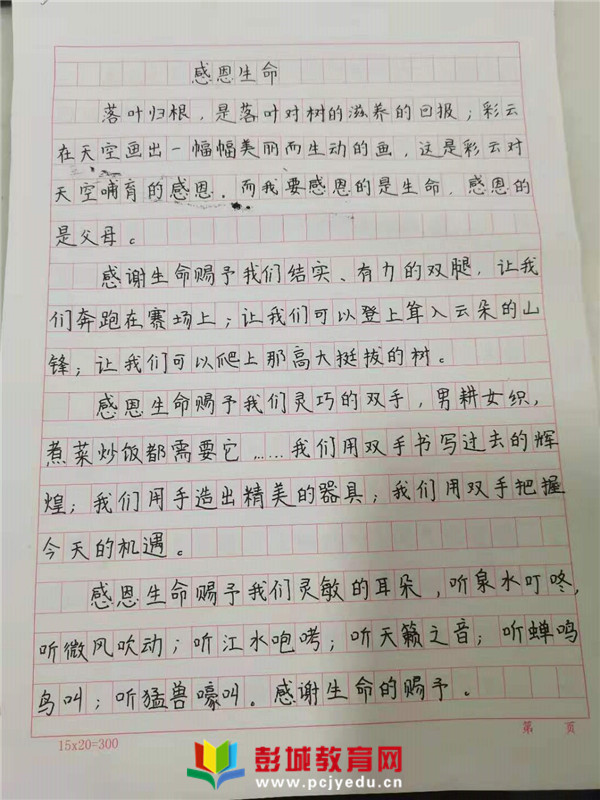 感恩生命
落叶归根，是落叶对树的滋养的回报；彩云
在天空画出一幅幅美丽而生动的画，这是彩云对
天空哺育的感恩．而我要感恩的是生命．感恩的
是父母。
感谢生命赐予我们结实、有力的双腿，让我
们奔跑在赛场上；让我们可以登上耸入云朵的山
锋；让我们可以爬上那高大挺拔的树。
感恩生命赐予我们灵巧的双手，男耕女织，
煮菜炒饭都需要它……我们用双手书写过去的辉
煌；我们用手造出精美的器具；我们用双手把握
今天的机遇。
感恩生命赐予我们灵敏的耳朵，听泉水叮咚，
听微风吹动；听江水咆哮；听天籁之音；听蝉鸣
鸟叫；听猛兽嚎叫。感谢生命的赐予。
15x20=300
第 页
彭城教育网
www.pcjyedu.cn